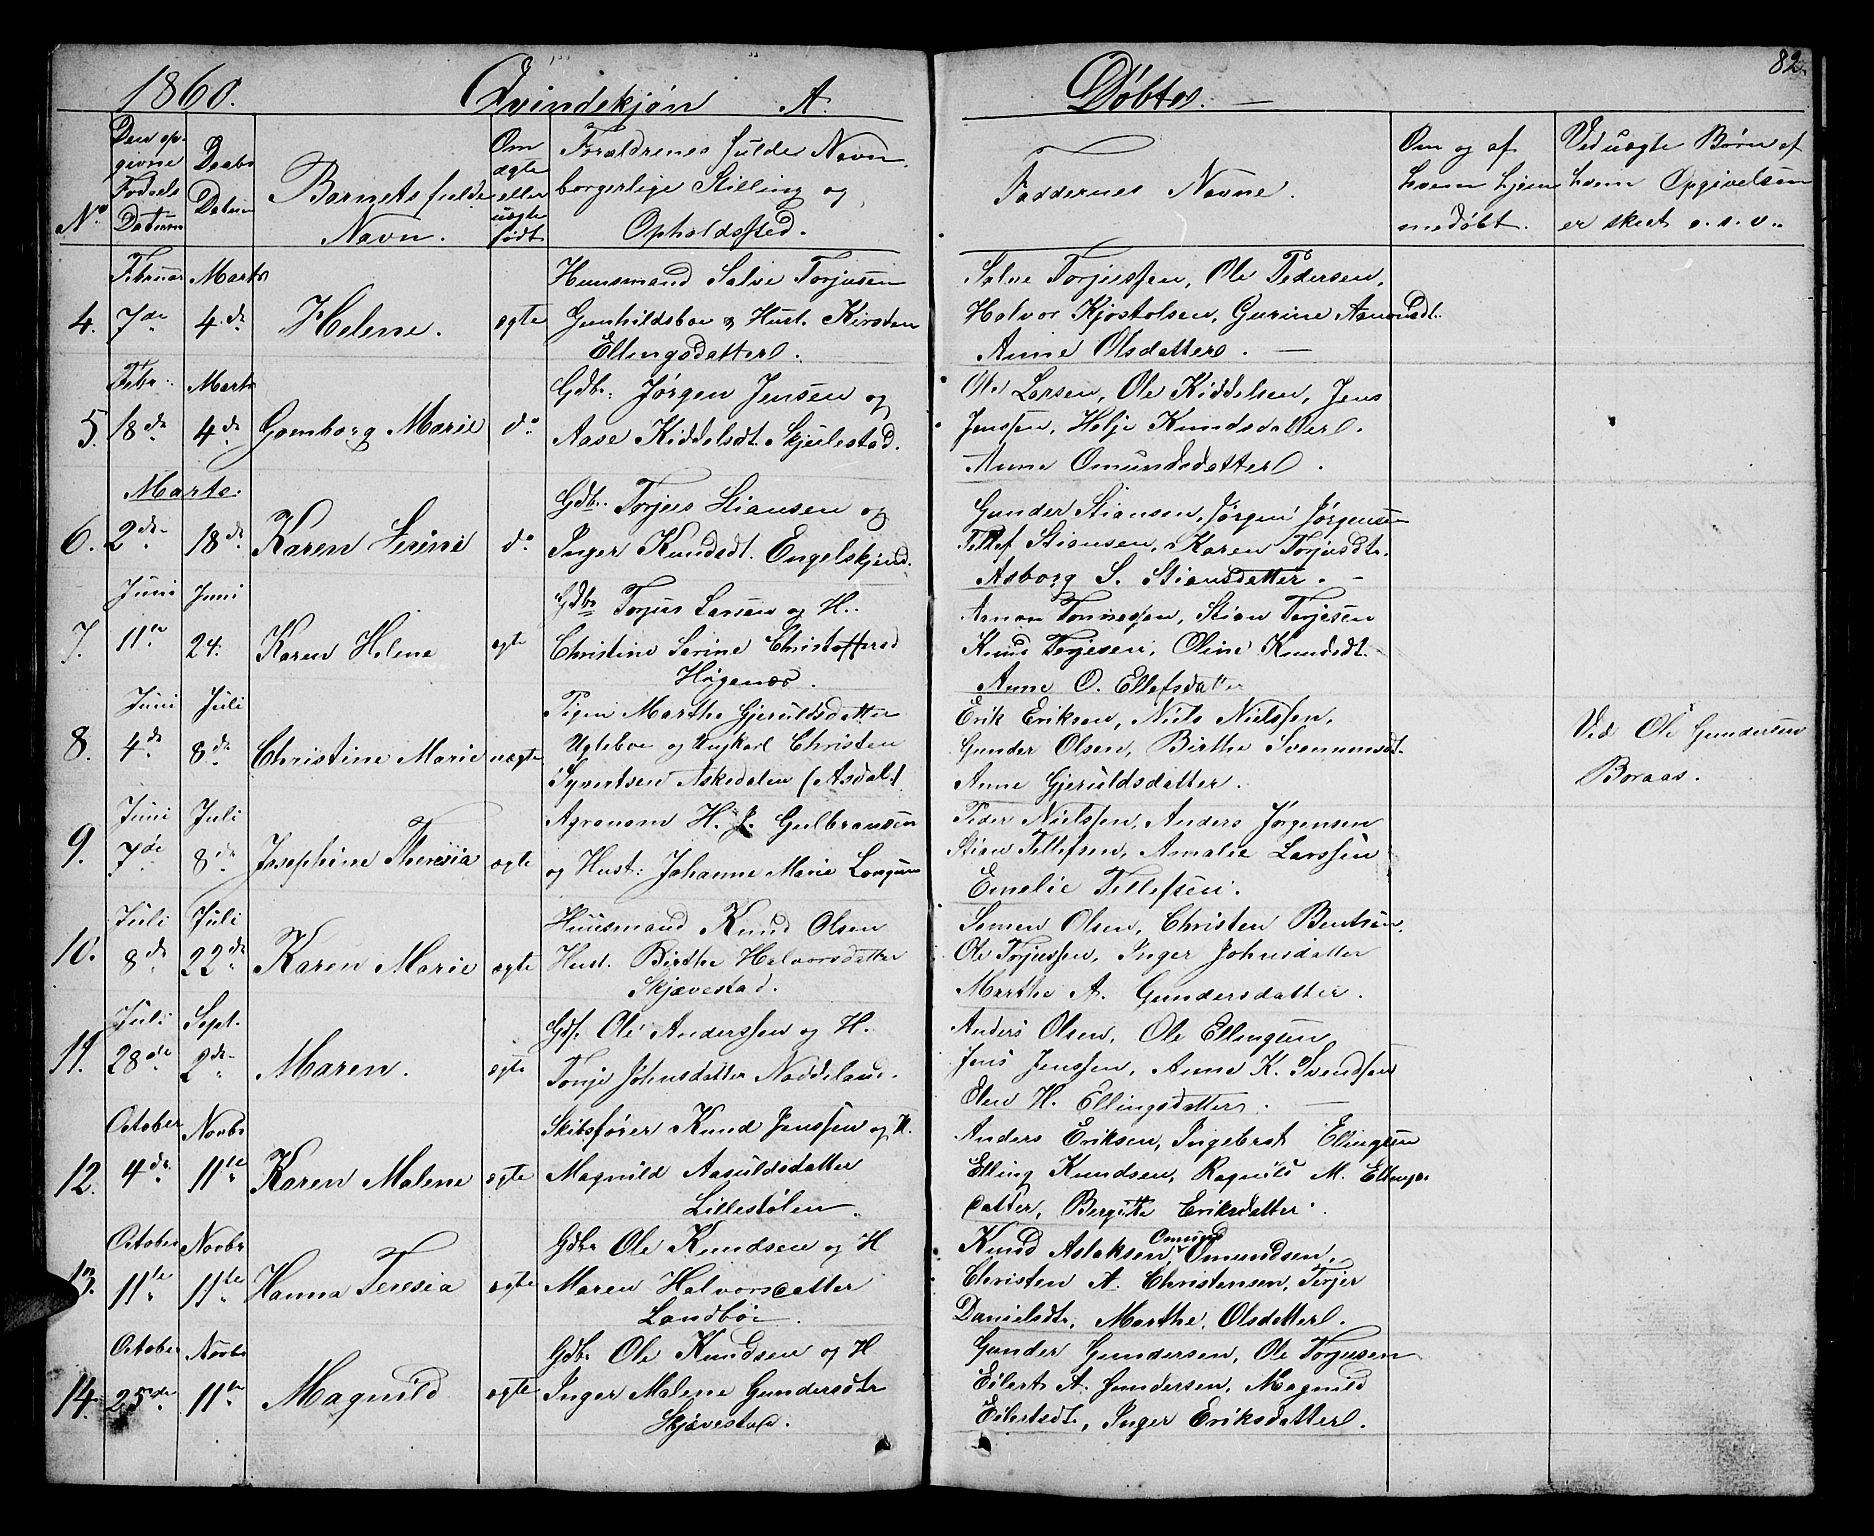 82.
1860. Qvindekjøn A. Døbte.
No
Den opgivne Fødsels Datum
Daabs Datum
Barnets fulde Navn.
Om ægte eller uægte født
Forældrenes fulde Navn, borgerlige Stilling og Opholdssted.
Faddernes Navne.
Om og af hvem hjemmedøbt.
Ved uægte Børn af hvem Opgivelsen er skeet o. s. v.
4. Februar 7de Marts 4de Helene. ægte
Huusmand Salve Torjusen
Gunhildsboe & Hust. Kirsten
Ellingsdatter.
Salve Torjussen, Ole Pedersen,
Halvor Kjøstolsen, Gurine Asmondt.
Anne Olsdatter.
5. Febr. 18de Marts 4de Gomborg Marie do
Gdbr. Jørgen Jensen og
Aase Kiddelsdt. Skjulestad.
Ole Larsen, Ole Kiddelsen, Jens
Jenssen, Helje Knudsdatter.
Anne Omundsdatter.
Marts.
6. 2de 18de Karen Serine do
Gdbr. Torjus Stiansen og
Inger Knudsdt. Engelskjend.
Gunder Stiansen, Jørgen Jørgensen
Tellef Stiansen, Karen Torjusdtr.
Asborg S. Stiansdatter.
7. Juni 11te Juni 24. Karen Helene ægte
Gdbr Torjus Larsen og H.
Christine Serine Christoffersd
Høgenæs.
Aanon Tonnessen, Stian Terjesen
Knud Terjesen, Oline Knudsdt.
Anne O. Ellefsdatter
8. Juni 4de Juli 8de Christine Marie uægte
Pigen Marthe Gjeruldsdatter
Ugleboe og Ungkarl Christen
Syvertsen Askedalen (Asdal)
Erik Eriksen, Niels Nielssen,
Gunder Olsen, Birthe Svenumsdt.
Anne Gjeruldsdatter.
Ved Ole Gundersen
Boraas.
9. Juni 7de Juli 8de Josephine Theresia ægte
Agronom H. J. Gulbransen
og Hust: Johanne Marie Longum
Peder Nielssen, Anders Jørgensen
Stian Tellefsen, Amalie Larssen
Emelie Tellefsen.
10. Juli 8de Juli 22de Karen Marie ægte
Huusmand Knud Olsen
Hust. Birthe Halvorsdatter
Skjævestad.
Semen Olsen, Christen Bentsen,
Ole Torjussen, Inger Johnsdatter
Marthe A. Gundersdatter.
11. Juli 28de Sept. 2de Maren. ægte
Gdf. Ole Anderssen og H.
Tonje Johnsdatter Naddeland.
Anders Olsen, Ole Ellingsen
Jens Jenssen, Anne K. Svendsen
Elen H. Ellingsdatter.
12. October 4de Novbr 11te Karen Malene ægte
Skibsfører Knud Jenssen og H.
Magnild Aasuldsdatter
Lillestølen.
Anders Eriksen, Ingebret Ellingsen
Elling Knudsen, Ragnild M. Ellings-
datter, Bergitte Eriksdatter.
13. October 11te Novbr 11te Hanna Teresia ægte
Gdbr Ole Knudsen og H
Maren Halvorsdatter
Landbøe.
Knud Aslaksen, Omund Omundsen,
Christen A. Christensen, Terjer
Danielsdt, Marthe Olsdatter.
14. October 25de Novbr 11te Magnild ægte
Gdbr Ole Knudsen og H
Inger Malene Gundersdtr
Skjævestad.
Gunder Gundersen, Ole Torjusen
Eilert A. Gundersen, Magnild
Eilertsdt, Inger Eriksdatter.